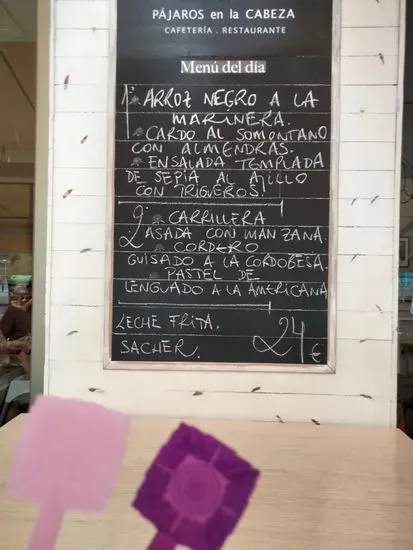 PÁJAROS en la CABEZA
CAFETERÍA . RESTAURANTE
Menú del día
1º ARROZ NEGRO A LA
MARINERA.
CARDO AL SOMONTANO
CON ALMENDRAS.
ENSALADA TEMPLADA
DE SEPIA AL AJILLO
CON TRIGUEROS.
2º CARRILLERA
ASADA CON MANZANA.
CORDERO
GUISADO A LA CORDOBESA.
PASTEL DE
LENGUADO A LA AMERICANA
LECHE FRITA.
SACHER.
24 €